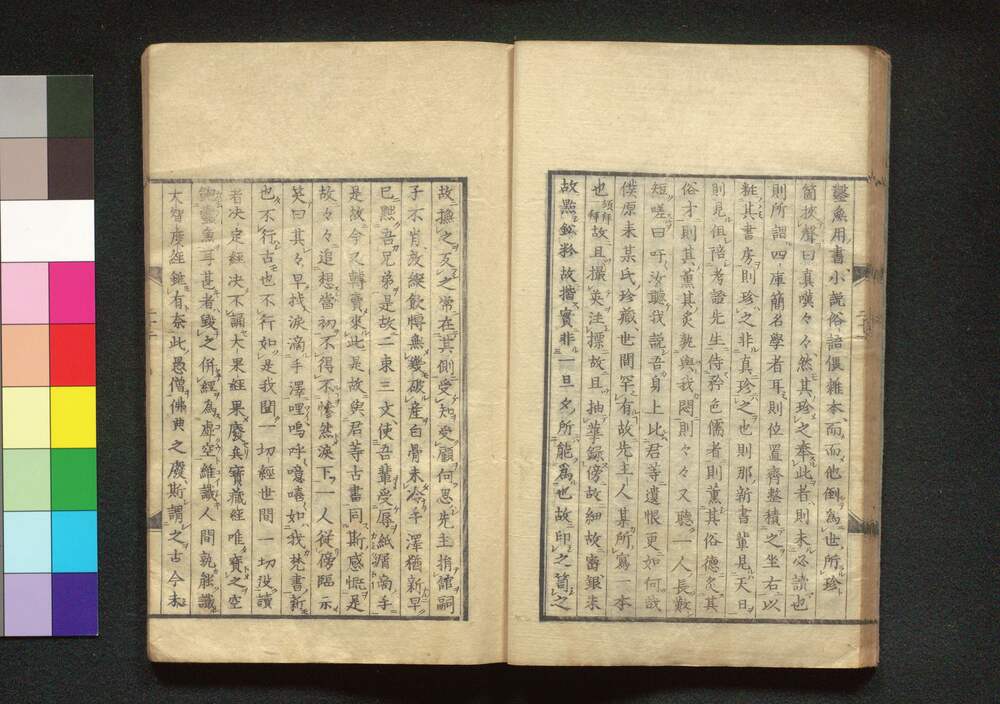 蠹魚用書小説俗語俚雜本而而他倒為世所珍
箇拔聲曰真嘆々々然其珍之奉此者則未必讀也
則所謂四庫簡名學者耳則位置齊整積之坐右以
粧其書房則珍之非真珍之也則那新書輩見天日
則見但陪考證先生侍矜色儒者則薰其俗德炙其
俗才則其薰其炙孰與我悶則々々又聽一人長歎
短嗟曰吁汝聽我説吾身上比君等遺恨更如何哉
僕原來某氏珍藏世間罕有故先主人某所寫一本
也須解々々故且撮夾注標故且抽莩録傍故細故密銀朱
故點鉛粉故揩實非一旦夕所能為也故印之篇之
故換之友之常在其側受知受顧何思先主捐館嗣
子不肖放縱飲愽無幾破産白骨未冷手澤猶新早
已熙吾兄弟是故二束三文使吾輩受辱紙屑商手
是故今又轉賣來此是故與君等古書同斯感慨是
故々々追想當初不得不慘然淚下一人從傍臨示
笑曰其々早找淚滴手澤哩嗚呼噫嘻如我梵書新
也不行古也不行如是我聞一切經世間一切没讀
者決定經決不誦大果經果廢矣寶藏經唯寶之空
飽蠹魚耳甚者毀之併經為虚空維識人間孰能識
大智度經鋪有奈此愚僧佛典之廢斯謂之古今未